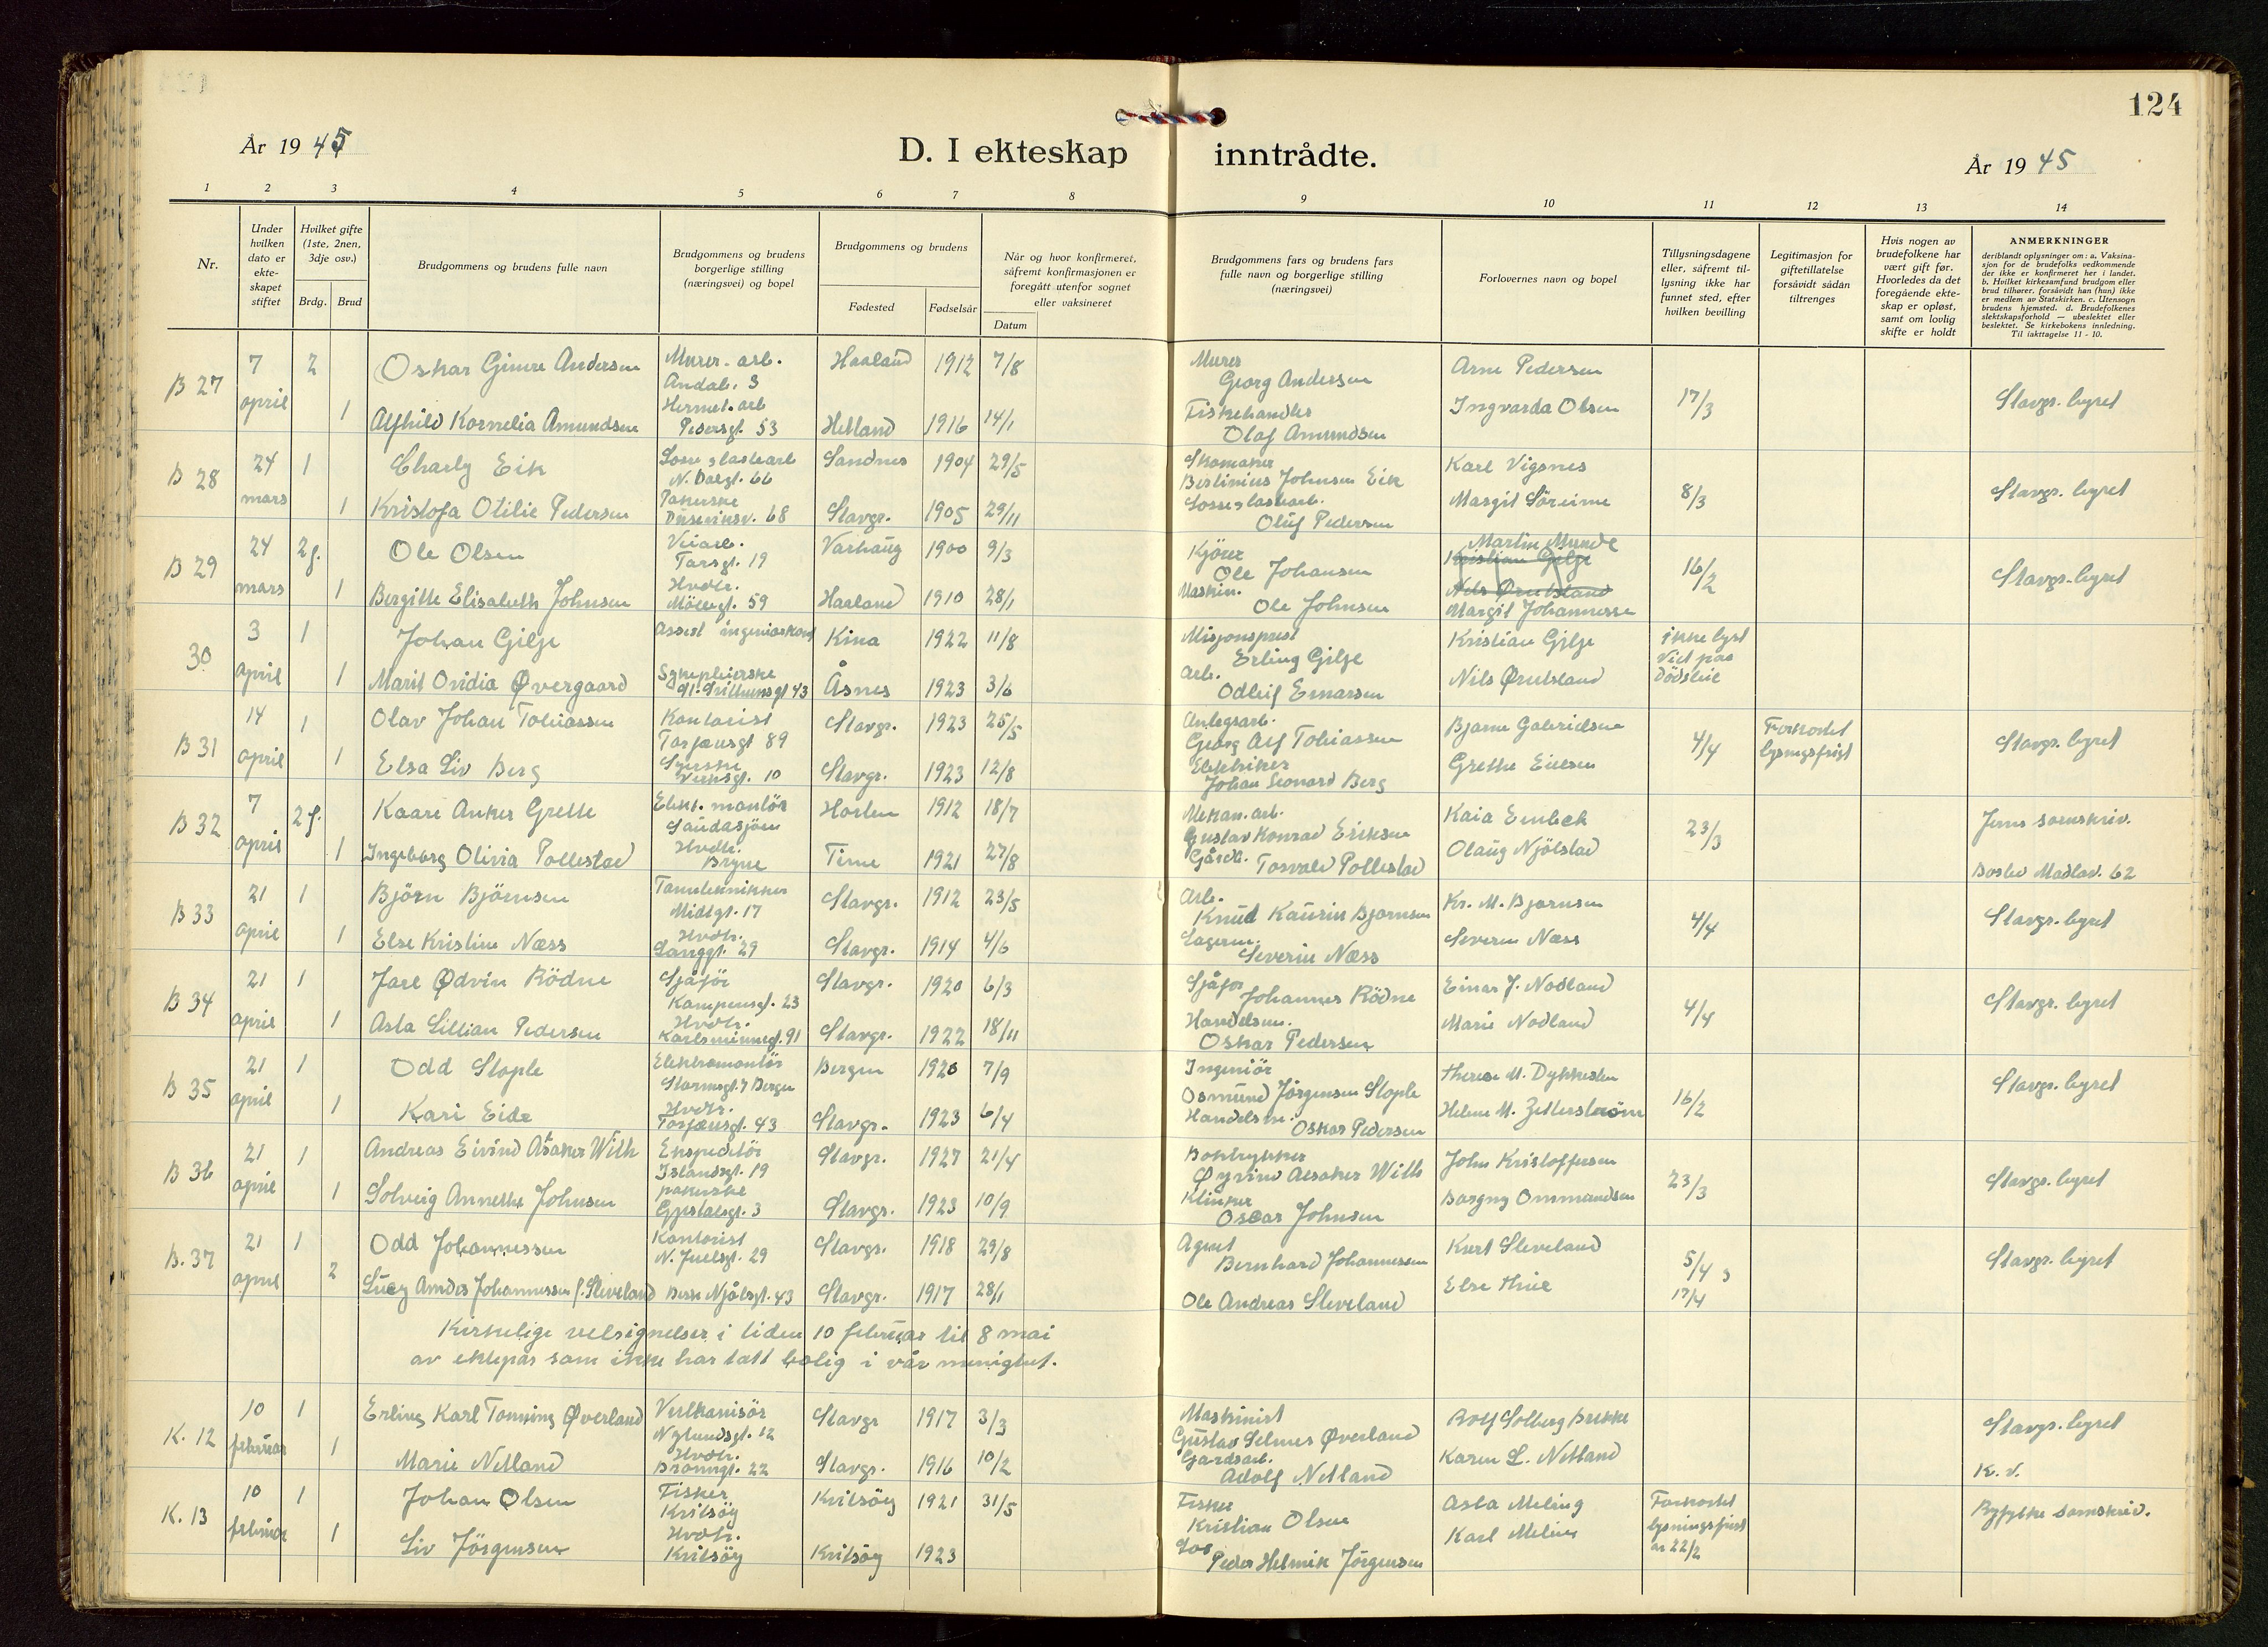 124
År 1945
D. I ekteskap inntrådte.
År 1945
1 2 3 4 5 6 7 8 9 10 11 12 13 14
Nr.
Under hvilken dato er ekte-skapet stiftet
Hvilket gifte (1ste, 2nen, 3dje osv.)
Brdg. Brud
Brudgommens og brudens fulle navn
Brudgommens og brudens borgerlige stilling (næringsvei) og bopel
Brudgommens og brudens
Fødested Fødselsår
Når og hvor konfirmeret, såfremt konfirmasjonen er foregått utenfor sognet eller vaksineret
Datum
Brudgommens fars og brudens fars fulle navn og borgerlige stilling (næringsvei)
Forlovernes navn og bopel
Tillysningsdagene eller, såfremt til-lysning ikke har funnet sted, efter hvilken bevilling
Legitimasjon for giftetillatelse forsåvidt sådan tiltrenges
Hvis nogen av brudefolkene har vært gift før. Hvorledes da det foregående ekte-skap er opløst, samt om lovlig skifte er holdt
ANMERKNINGER
deriblandt oplysninger om: a. Vaksina-sjon for de brudefolks vedkommende der ikke er konfirmeret her i landet. b. Hvilket kirkesamfund brudgom eller brud tilhører, forsåvidt han (hun) ikke er medlem av Statskirken. c. Utensogn brudens hjemsted. d. Brudefolkenes slektskapsforhold — ubeslektet eller beslektet. Se kirkebokens innledning. Til iakttagelse 11 - 10.
B 27 7 april 2 Oskar Gimre Andersen Murer-arb. Andab. 3 Haaland 1912 7/8 Murer Georg Andersen Arne Pedersen 17/3 Stavgr. byret
1 Alfhild Kornelia Amundsen Hermet. arb Pedersgt. 53 Hetland 1916 14/1 Fiskehandler Olaf Amundsen Ingvarda Olsen
B 28 24 mars 1 Charly Eik N. Dalgt. 66 Sandnes 1904 29/5 Skomaker Berlinius Johnsen Eik Karl Vigsnes 8/3 Stavgr. byret
1 Kristofa Otilie Pedersen Pakerske 68 Stavgr. 1905 29/11 Oluf Pedersen Margit Söreime
B 29 24 mars 2 f. Ole Olsen Veiarb. Tarsgt. 19 Varhaug 1900 9/3 Kjörer Ole Johansen Martin Munde Kristian Gilje 16/2 Stavgr. byret
1 Bergitte Elisabeth Johnsen Hvdtr. Möllegt. 59 Haaland 1910 28/1 Maskin. Ole Johnsen Margit Johannessen
30 3 april 1 Johan Gilje Assist Kina 1922 11/8 Misjonsprest Erling Gilje Kristian Gilje ikke lyst Viet paa Dödsleie
1 Marit Ovidia Øvergaard Sykepleierske 43 Åsnes 1923 3/6 Arb. Odleif Emarsen Nils
B 31 14 april 1 Olav Johan Tobiassen Kontorist Torfæusgt 89 Stavgr. 1923 25/5 Anlegsarb. Georg Alf Tobiassen Bjarne Gabrielsen 4/4 Forkortet lysningsfrist Stavgr. byret
1 Elsa Liv Berg Syerske Verksgt. 10 Stavgr. 1923 12/8 Elektriker Johan Leonard Berg Grethe Eielsen
B 32 7 april 2 f. Kaare Anker Grette Elekt. montör Saudasjöen Horten 1912 18/7 Mekan. arb. Gustav Konrad Eriksen Kaia Embek 23/3 Jærns sorenskriv.
1 Ingeborg Olivia Pollestad Hvdtr. Bryne Time 1921 27/8 Gårdb. Torvald Pollestad Olaug Njölstad Bosted Madlav. 62
B 33 21 april 1 Björn Björnsen Tanntekniker Midtgt. 17 Stavgr. 1912 23/5 Arb. Knud Kaurin Bjørnsen Kr. M. Bjørnsen 4/4 Stavgr. byret
1 Else Kristine Næss Hvdtr. Langgt. 29 Stavgr. 1914 4/6 Lagerm. Severin Næss Severin Næss
B 34 21 april 1 Jarl Ødvin Rödne Sjåfør Kampensgt. 23 Stavgr. 1920 6/3 Sjåfør Johannes Rödne Einar J. Nodland 4/4 Stavgr. byret
1 Asta Lillian Pedersen Hvdtr. Karlsminnegt. 91 Stavgr. 1922 18/11 Handelsm. Oskar Pedersen Marie Nodland
B 35 21 april 1 Odd Stople Elektromontör Stormsgt. 7 Bergen Bergen 1920 7/9 Ingeniör Osmund Jörgensen Stople Therese M. Dykkesten 16/2 Stavgr. byret
1 Kari Eide Hvdtr. Torfæusgt. 43 Stavgr. 1923 6/4 Handelsm. Oskar Pedersen Helene M. Zetterström
B 36 21 april 1 Andreas Eivind Alsaker With Ekspeditör Islandsgt. 19 Stavgr. 1927 21/4 Boktrykker Øyvind Alsaker With John Kristoffersen 23/3 Stavgr. byret
1 Solveig Annethe Johnsen pakerske Gjestalsgt. 3 Stavgr. 1923 10/9 Klinker Oscar Johnsen Borgny Ommundsen
B. 37 21 april 1 Odd Johannessen Kontorist N. Juelsgt. 29 Stavgr. 1918 29/8 Agent Bernhard Johannessen Kurt Sleveland 5/4 17/4 Stavgr. byret
2 Lucy Amdis Johannessen f. Sleveland Njålsgt. 43 Stavgr. 1917 28/1 Ole Andreas Sleveland Else Thue
Kirkelige velsignelser i tiden 10 februar til 8 mai
av ektepar som ikke har tatt bolig i vår menighet.
K. 12 10 februar 1 Erling Karl Tonning Øverland Vulkanisör Nylundsgt. 12 Stavgr 1917 3/3 Maskinist Gustav Selmer Øverland Rolf Solberg Brekke Stavgr. byret
1 Marie Netland Hvdtr. Brönngt. 22 Stavgr. 1916 10/2 Gardsarb. Adolf Netland Karen L. Netland K. v.
K. 13 10 februar 1 Johan Olsen Fisker Kvitsöy Kvitsöy 1921 31/5 Fisker Kristian Olsen Asta Meling Forkortet lysningsfrist av 22/2 Ryfylke sorenskriv.
1 Liv Jörgensen Hvdtr. Kvitsöy Kvitsöy 1923 Los Peder Helmik Jörgensen Karl Meling